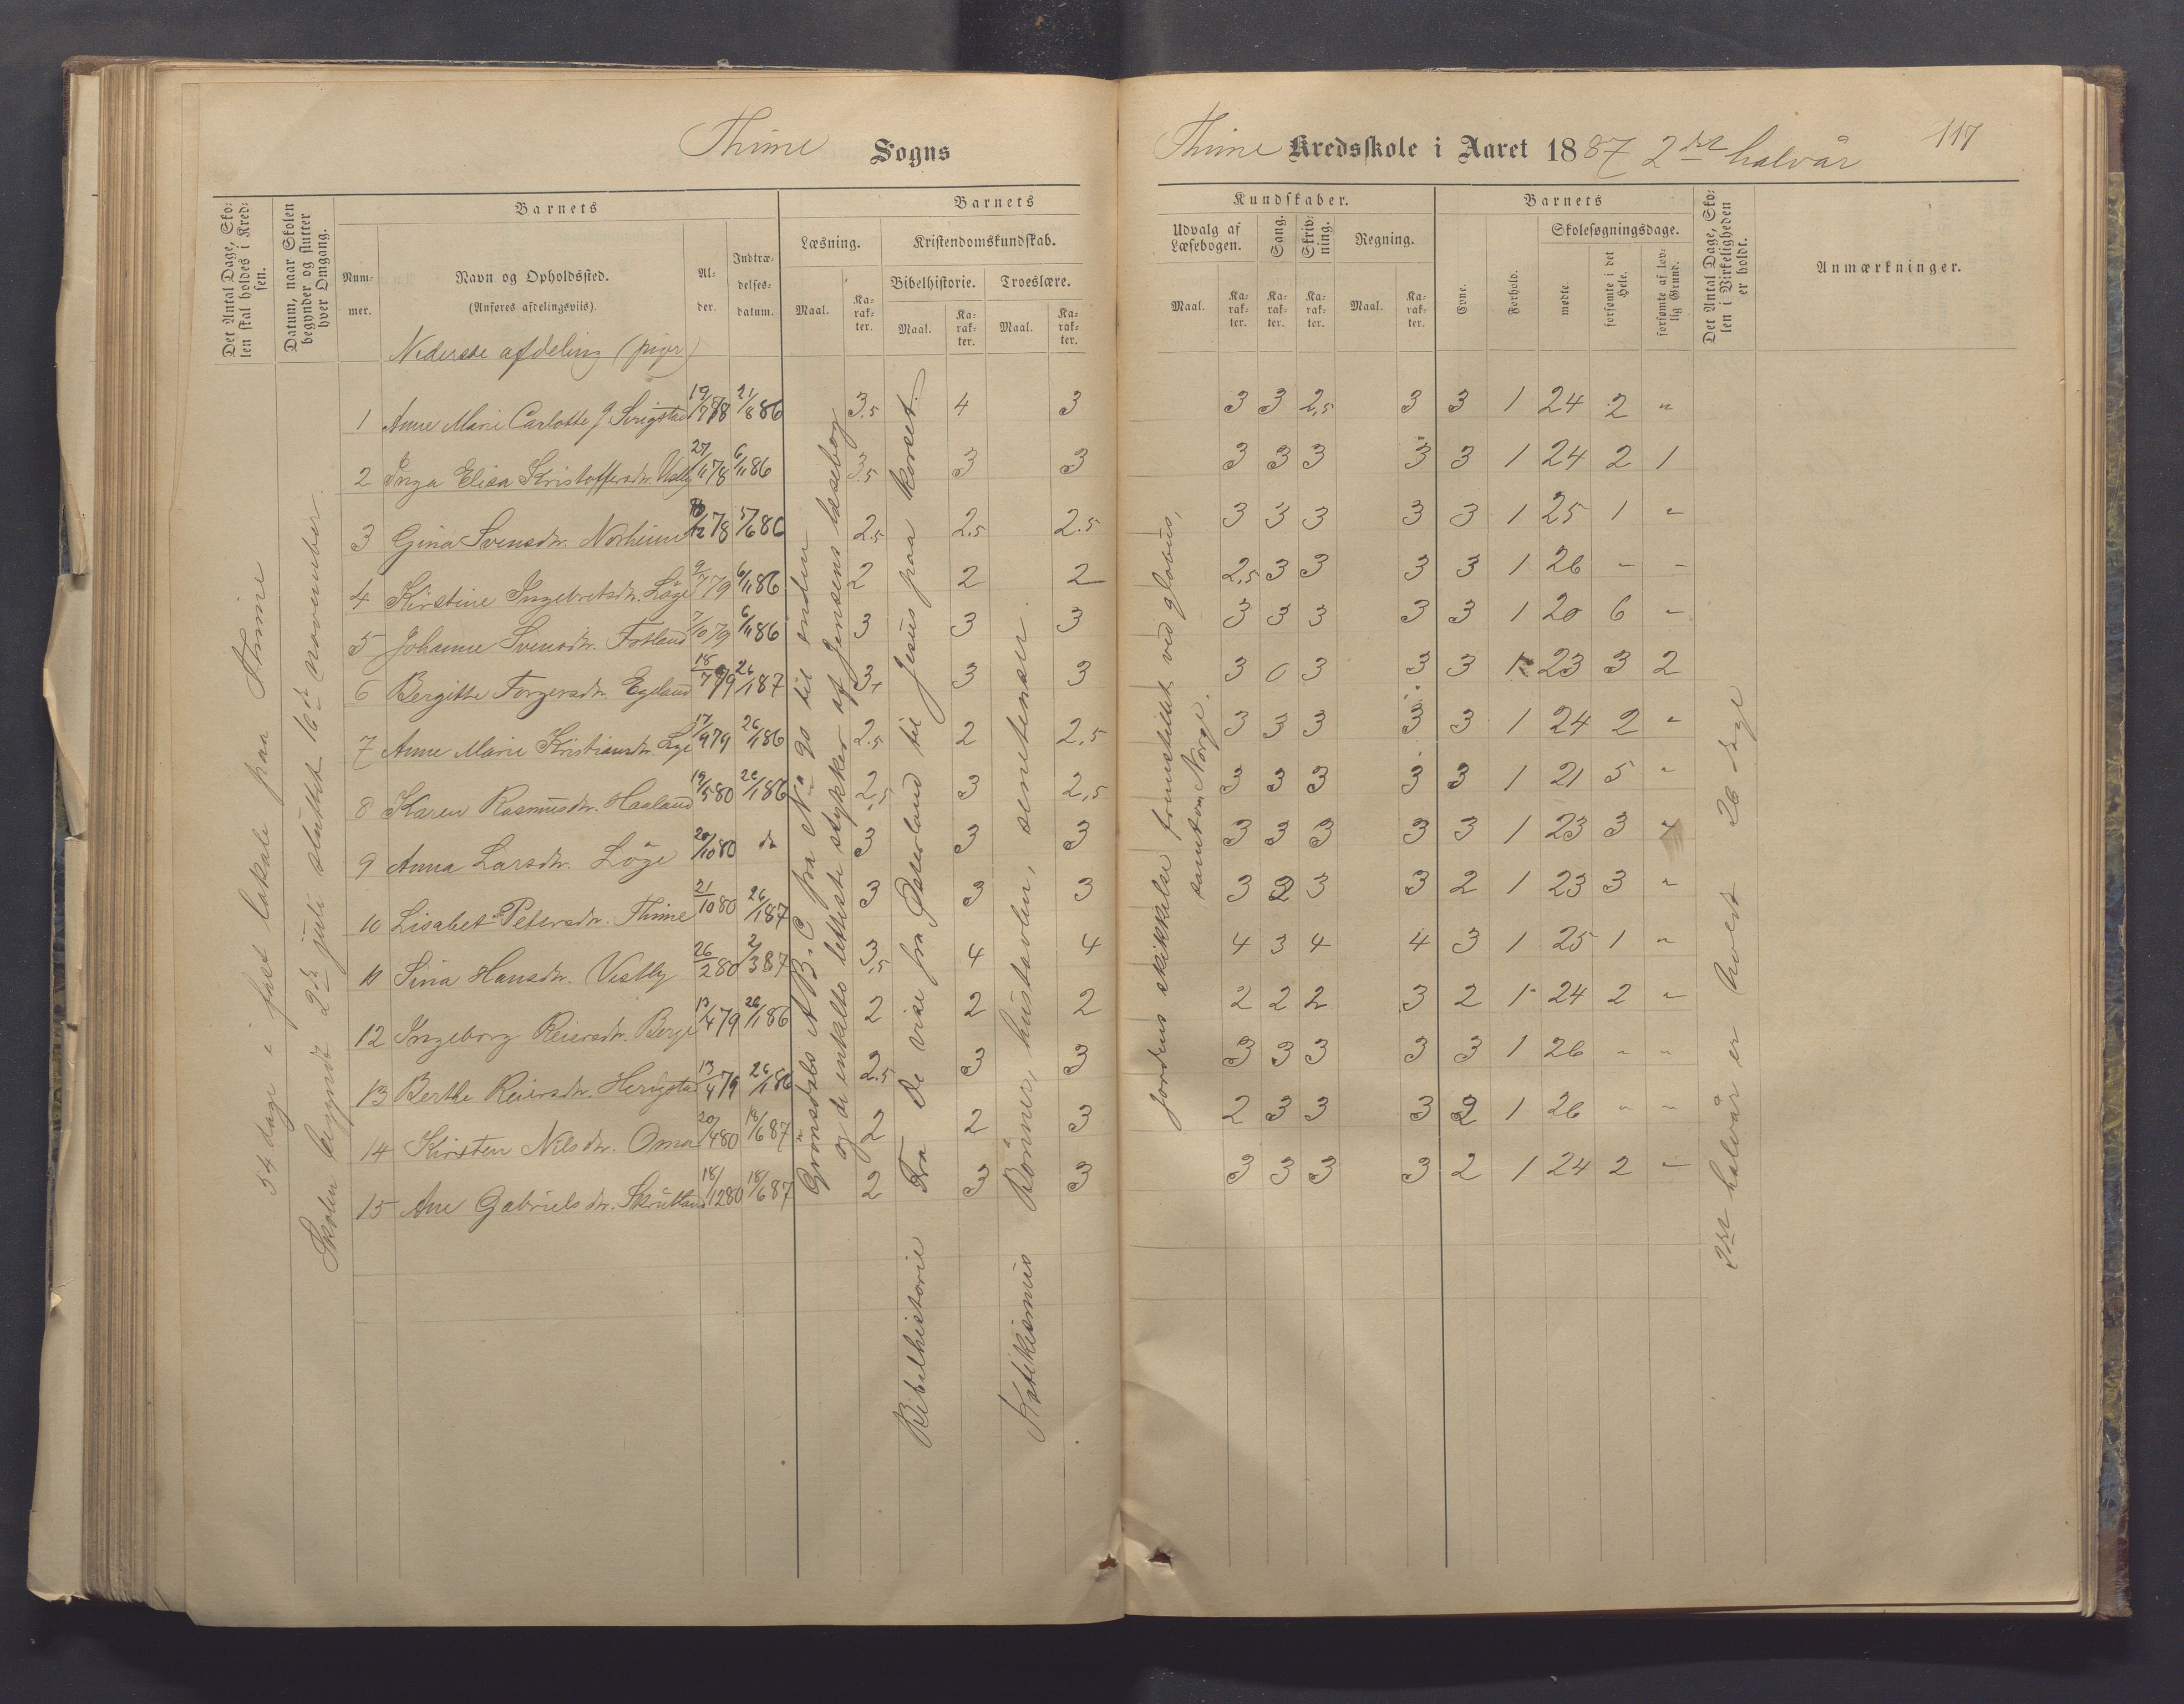 Thime Sogns
Thime Kredsskole i Aaret 1887 2det halvår
117
Det Antal Dage, Skolen skal holdes i Kredsen.
Datum, naar Skolen begynder og slutter hver Omgang.
Barnets
Nummer.
Navn og Opholdssted.
(Anføres afdelingsviis).
Alder.
Indtrædelsesdatum.
Barnets
Læsning.
Kristendomskundskab.
Bibelhistorie. Troeslære.
Maal. Karakter. Maal. Karakter. Maal. Karakter.
Kundskaber.
Udvalg af Læsebogen.
Sang.
Skrivning.
Regning.
Maal. Karakter. Karakter. Karakter. Maal. Karakter.
Barnets
Evne.
Forhold.
Skolesøgningsdage.
mødte
forsømte i det Hele.
forsømte af lovlig Grund.
Det Antal Dage, Skolen i Virkeligheden er holdt.
Anmærkninger.
Nederste afdeling (piger)
54 dage i fast lokale paa Thime
Skolen begyndt 2den juli sluttet 16de november.
Grönsdals A B C fra No 90 til enden
og de enkelte letteste stykker af Jensens læsebog
Bibelhistorie Fra De vise fra Østerland til Jesus paa korset.
Katekismus Bönner, hustavlen, senetenser.
Jordens skikkelse fremstillet ved globus,
samt om Norge.
2det halvår er holdt 26 dage
1 Anne Marie Carlotte J Svigstad 19/7 78 21/8 86 3.5 4 3 3 3 2,5 3 3 1 24 2 "
2 Inga Elisa Kristoffersdtr. Vestly 27/11 78 6/11 86 3.5 3 3 3 3 3 3 3 1 24 2 1
3 Gina Svensdtr. Norheim 12 78 5/6 86 2.5 2.5 2.5 3 3 3 3 3 1 25 1 "
4 Kirstine Ingebretsdtr. Löge 9/7 79 6/11 86 2 2 2 2,5 3 3 3 3 1 26 - -
5 Johanne Svensdtr. Fotland 7/10 79 6/11 86 3 3 3 3 3 3 3 3 1 20 6 "
6 Bergitte Torgersdtr. Egeland 18/7 79 26/1 87 3+ 3 3 3 0 3 3 3 1 23 3 2
7 Anne Marie Kristiansdtr. Lye 17/9 79 26/1 86 2.5 2 2,5 3 3 3 3 3 1 24 2 "
8 Karen Rasmusdtr. Haaland 19/5 80 26/1 86 2,5 3 2,5 3 3 3 3 3 1 21 5 "
9 Anna Larsdtr. Löge 20/10 80 do 3 3 3 3 3 3 3 3 1 23 3 "
10 Lisabet Petersdtr. Thime 21/10 80 26/1 87 3 3 3 3 2 3 3 2 1 23 3 "
11 Sina Hansdtr. Vestly 26/2 80 2/3 87 3,5 4 4 4 3 4 4 3 1 25 1 "
12 Ingeborg Reiersdtr. Berge 13/4 79 26/1 86 2 2 2 2 2 2 3 2 1 24 2 "
13 Berthe Reiersdtr. Herigstad 13/4 79 26/1 86 2.5 3 3 3 3 3 3 3 1 26 " "
14 Kirsten Nilsdtr. Oma 20/4 80 18/6 87 2 2 3 2 3 3 3 2 1 26 " "
15 Ane Gabrielsdtr. Skrutland 18/12 80 18/6 87 2 3 3 3 3 3 3 2 1 24 2 "